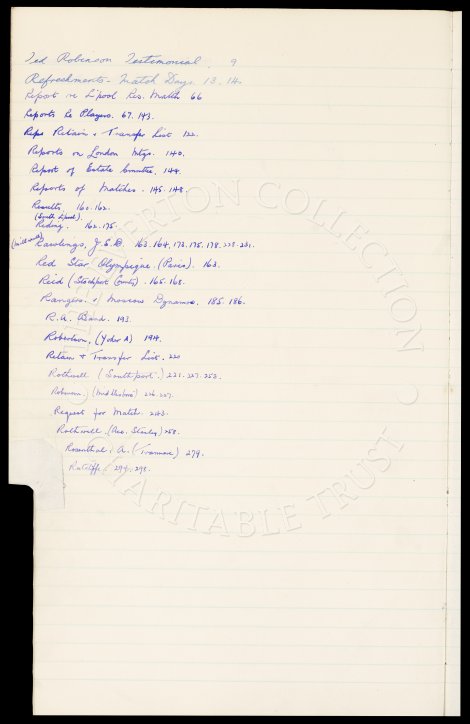 Ted Robinson Testimonial. 9
Refreshments - Match Days. 13. 14.
Report re L'pool Res. Match 66
Reports Re Players. 67. 143.
Reps Retain & Transfer List 122.
Reports on London Mtgs. 140.
Report of Estate Committee, 144.
Reports of Matches. 145. 148.
Results, 160. 162.
(South L'pool).
Reding. 162. 175.
(Millwall) Rawlings, J.S.D. 163. 164, 173. 175. 178. 228. 231.
Red Star Olympique. (Paris). 163.
Reid (Stockport County) . 165. 168.
Rangers. v Moscow Dynamo. 185. 186.
R.A. Band. 193.
Robertson, (Yoker A) 194.
Retain & Transfer List. 220
Rothwell (Southport.) 221. 227. 253.
Robinson, (Middlesboro') 226. 227.
Request for Match. 243.
Rothwell. (Acc. Stanley) 258.
Rosenthal. A. (Tranmere) 279.
Ratcliffe. 294. 295.
EVERTON COLLECTION
CHARITABLE TRUST